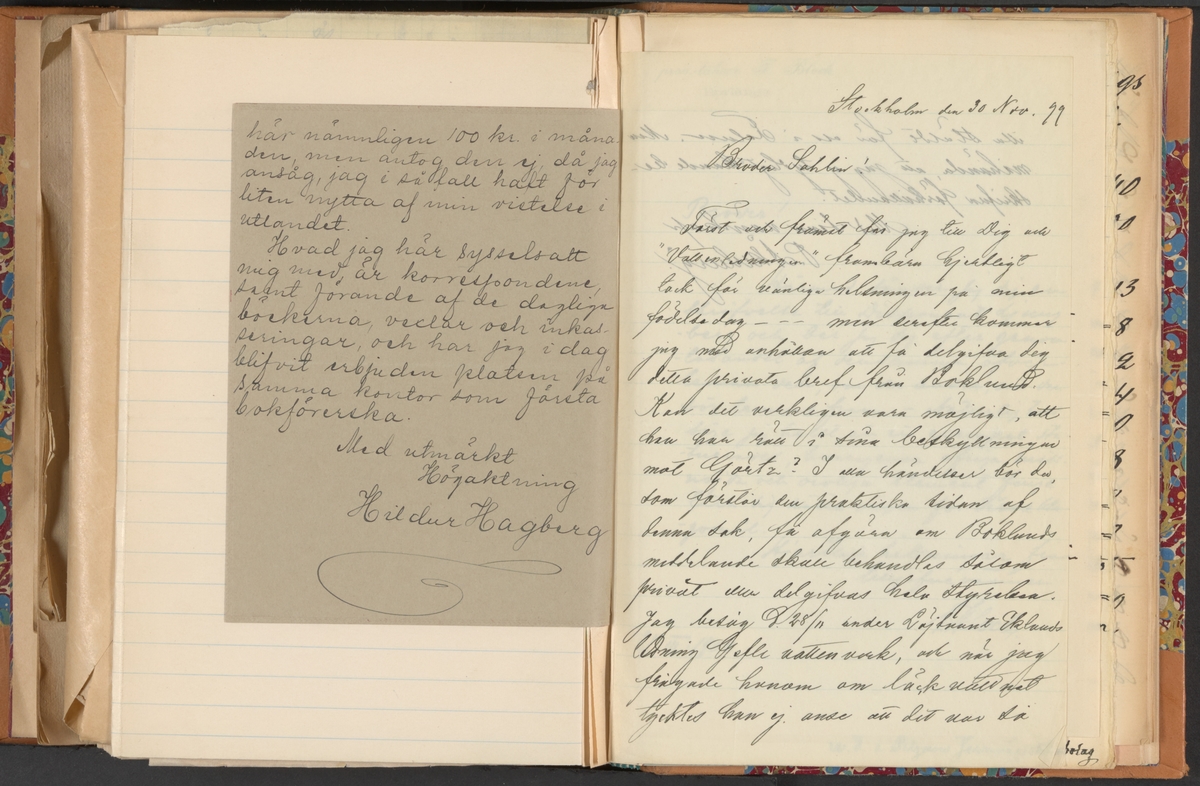 här nämnligen 100 kr. i måna-
den, men antog den ej, då jag
ansåg, jag i så fall haft för
liten nytta af min vistelse i
utlandet.
Hvad jag här sysselsatt
mig med, är korrespondens,
samt förande af de dagliga
böckerna, vexlar och inkas-
seringar, och har jag i dag
blifvit erbjuden platsen på
samma kontor som första
bokförerska.
Med utmärkt
Högaktning
Hildur Hagberg
Stockholm den 30 Nov. 99
Broder Sahlin!
Först och främst får jag till Dig och
"Vattenledningen" frambära hjertligt
tack för vänliga helsningen på min
födelsedag - - - men derefter kommer
jag med anhållan att få delgifva dig
detta privata bref från Boklund.
Kan det verkligen vara möjligt, att
han har rätt i sina beskyllningar
mot Görtz? I alla händelser bör du,
som förstår den praktiska sidan af
denna sak, få afgöra om Boklunds
meddelande skall behandlas såsom
privat eller delgifvas hela styrelsen.
Jag besåg d. 28/11 under Löjtnant Eklunds
ledning Gefle vattenverk, och när jag
frågade honom om läck
tycktes han ej anse att det var så
95
10
0
13
= 8
2
= 4
= 0
8
bolag